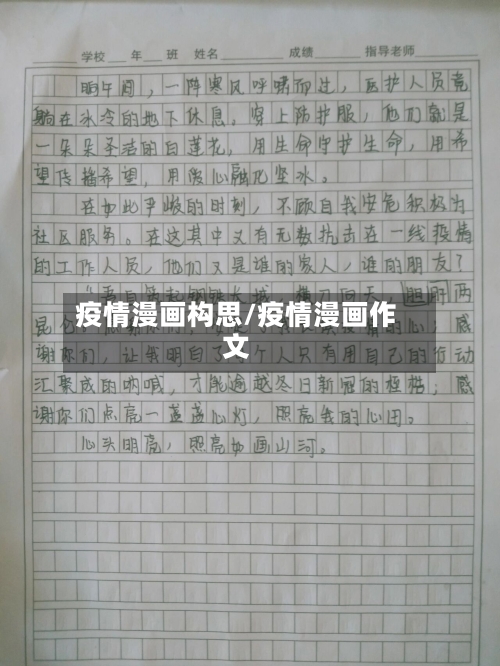 学校 年 班 姓名 成绩 指导老师
晌午间,一阵寒风呼啸而过,医护人员竟
躺在冰冷的地下休息。穿上防护服,他们就是
一朵朵圣洁的白莲花,用生命守护生命,用希
望传播希望,用爱心融化坚冰。
在如此严峻的时刻,不顾自我安危积极为
社区服务。在这其中又有无数抗击在一线疫情
的工作人员,他们又是谁的家人,谁的朋友?
疫情漫画构思/疫情漫画作
文
肝胆两
昆仑
感
谢你们,让我明白了 个人只有用自己的行动
汇聚成的呐喊,才能逾越冬日新冠的桎梏;感
谢你们点亮一盏盏心灯,照亮我的心田。
心头明亮,照亮如画山河。